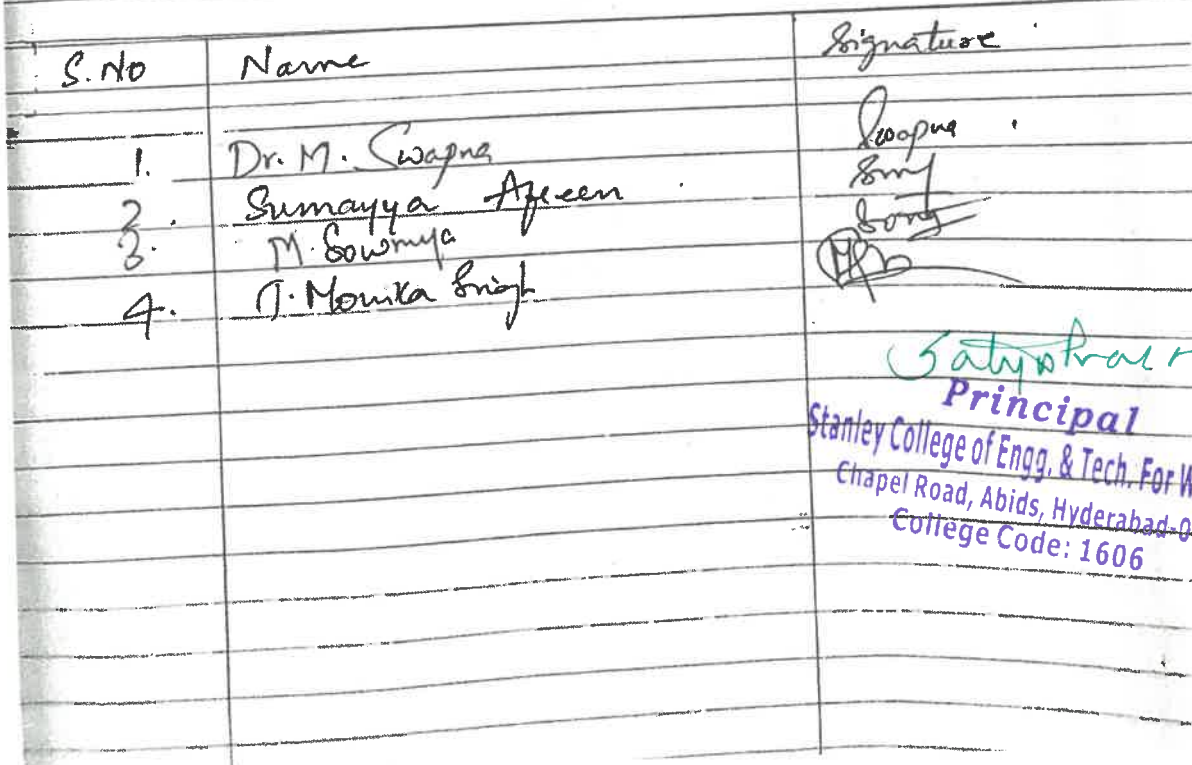 S.No Name Signature
1. Dr. M. Swapna Swapna
2. Sumayya Afreen
3. M. Sowmya
4. J. Monika Singh
Principal
Stanley College of Engg. & Tech. For W
Chapel Road, Abids, Hyderabad-0
College Code: 1606